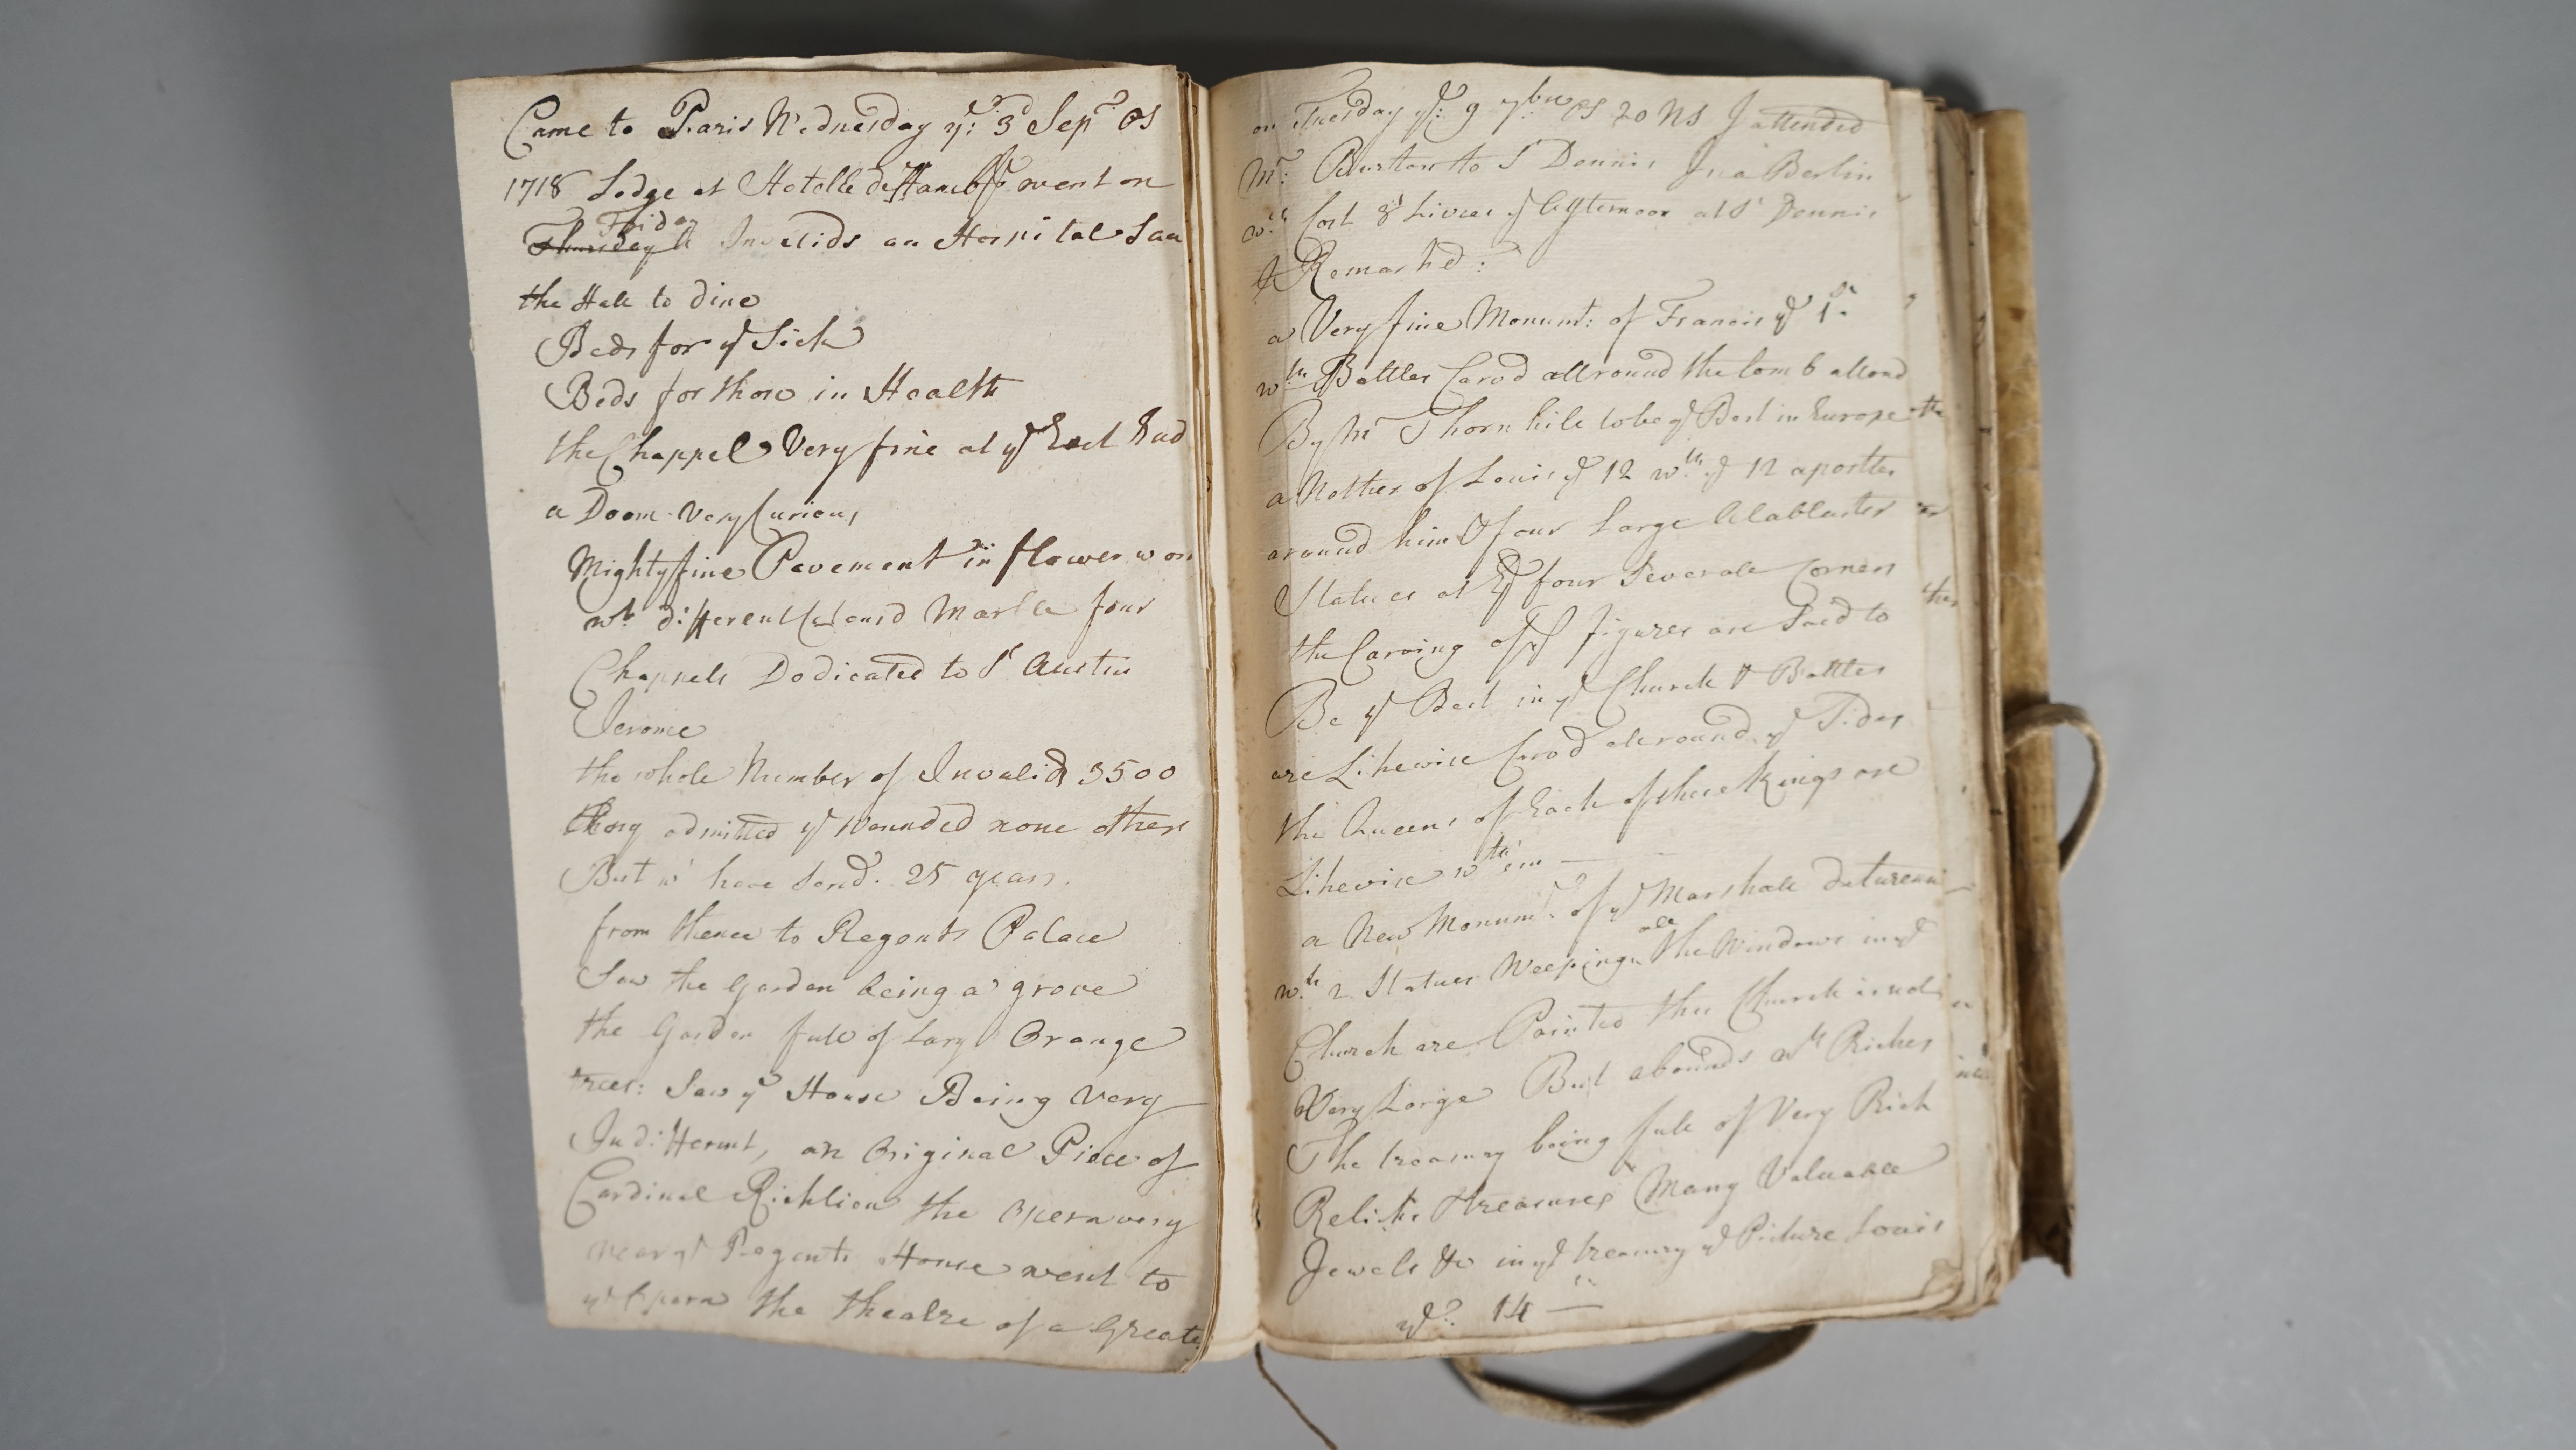 Came to Paris Wednesday ye: 3d Sepr OS
1718 Lodge at Hotelle went on
Thursday Friday Invelids an Hospital Saw
the Hall to dine
Beds for ye Sick
Beds for those in Health
the Chappel Very fine at ye East End
a Doom Very Curious
Mighty fine Pavement in flower wor
wth different Colourd Marble four
Chappels Dedicated to St Austin
Jerome
the whole Number of Invalids 3500
they admitted ye Wounded none others
But wt have Servd. 25 years
from thence to Regents Palace
Saw the Garden being a grove
the Garden full of Larg Orange
trees: Saw ye House Being Very
Indifferent, an Original Piece of
Cardinal Richlieu the Opera very
near ye Regents House went to
ye Opera the theatre of a Great
on Tuesday ye: 9 7ber OS 20 NS I attended
Mr: Burton to St Dennis In a Berlin
wch Cost 8 Livres ye Afternoon at St Dennis
& Remarkd:
a Very fine Monumt: of Francis ye 1st
wth Battles Carvd all round the tomb allowd
By Mr Thornhill to be ye Best in Europe
a Nother of Louis ye 12 wth ye 12 apostles
around him & four Large Alablaster
Statues at ye four Severale Corners
the Carving of ye figures are Said to
Be ye Best in ye Church & Battles
are Likewise Carvd all round ye Sides
the Queens of Each of these Kings are
Likewise wth em
a New Monumt. of ye Marshall deturenne
wth 2 Statues Weeping all the Windows in ye
Church are Painted this Church is not
Very Large But abounds wth Riches
The treasury being full of Very Rich
Relicks & treasures Many Valuable
Jewels &c in ye treasury ye Picture Louis
ye 14